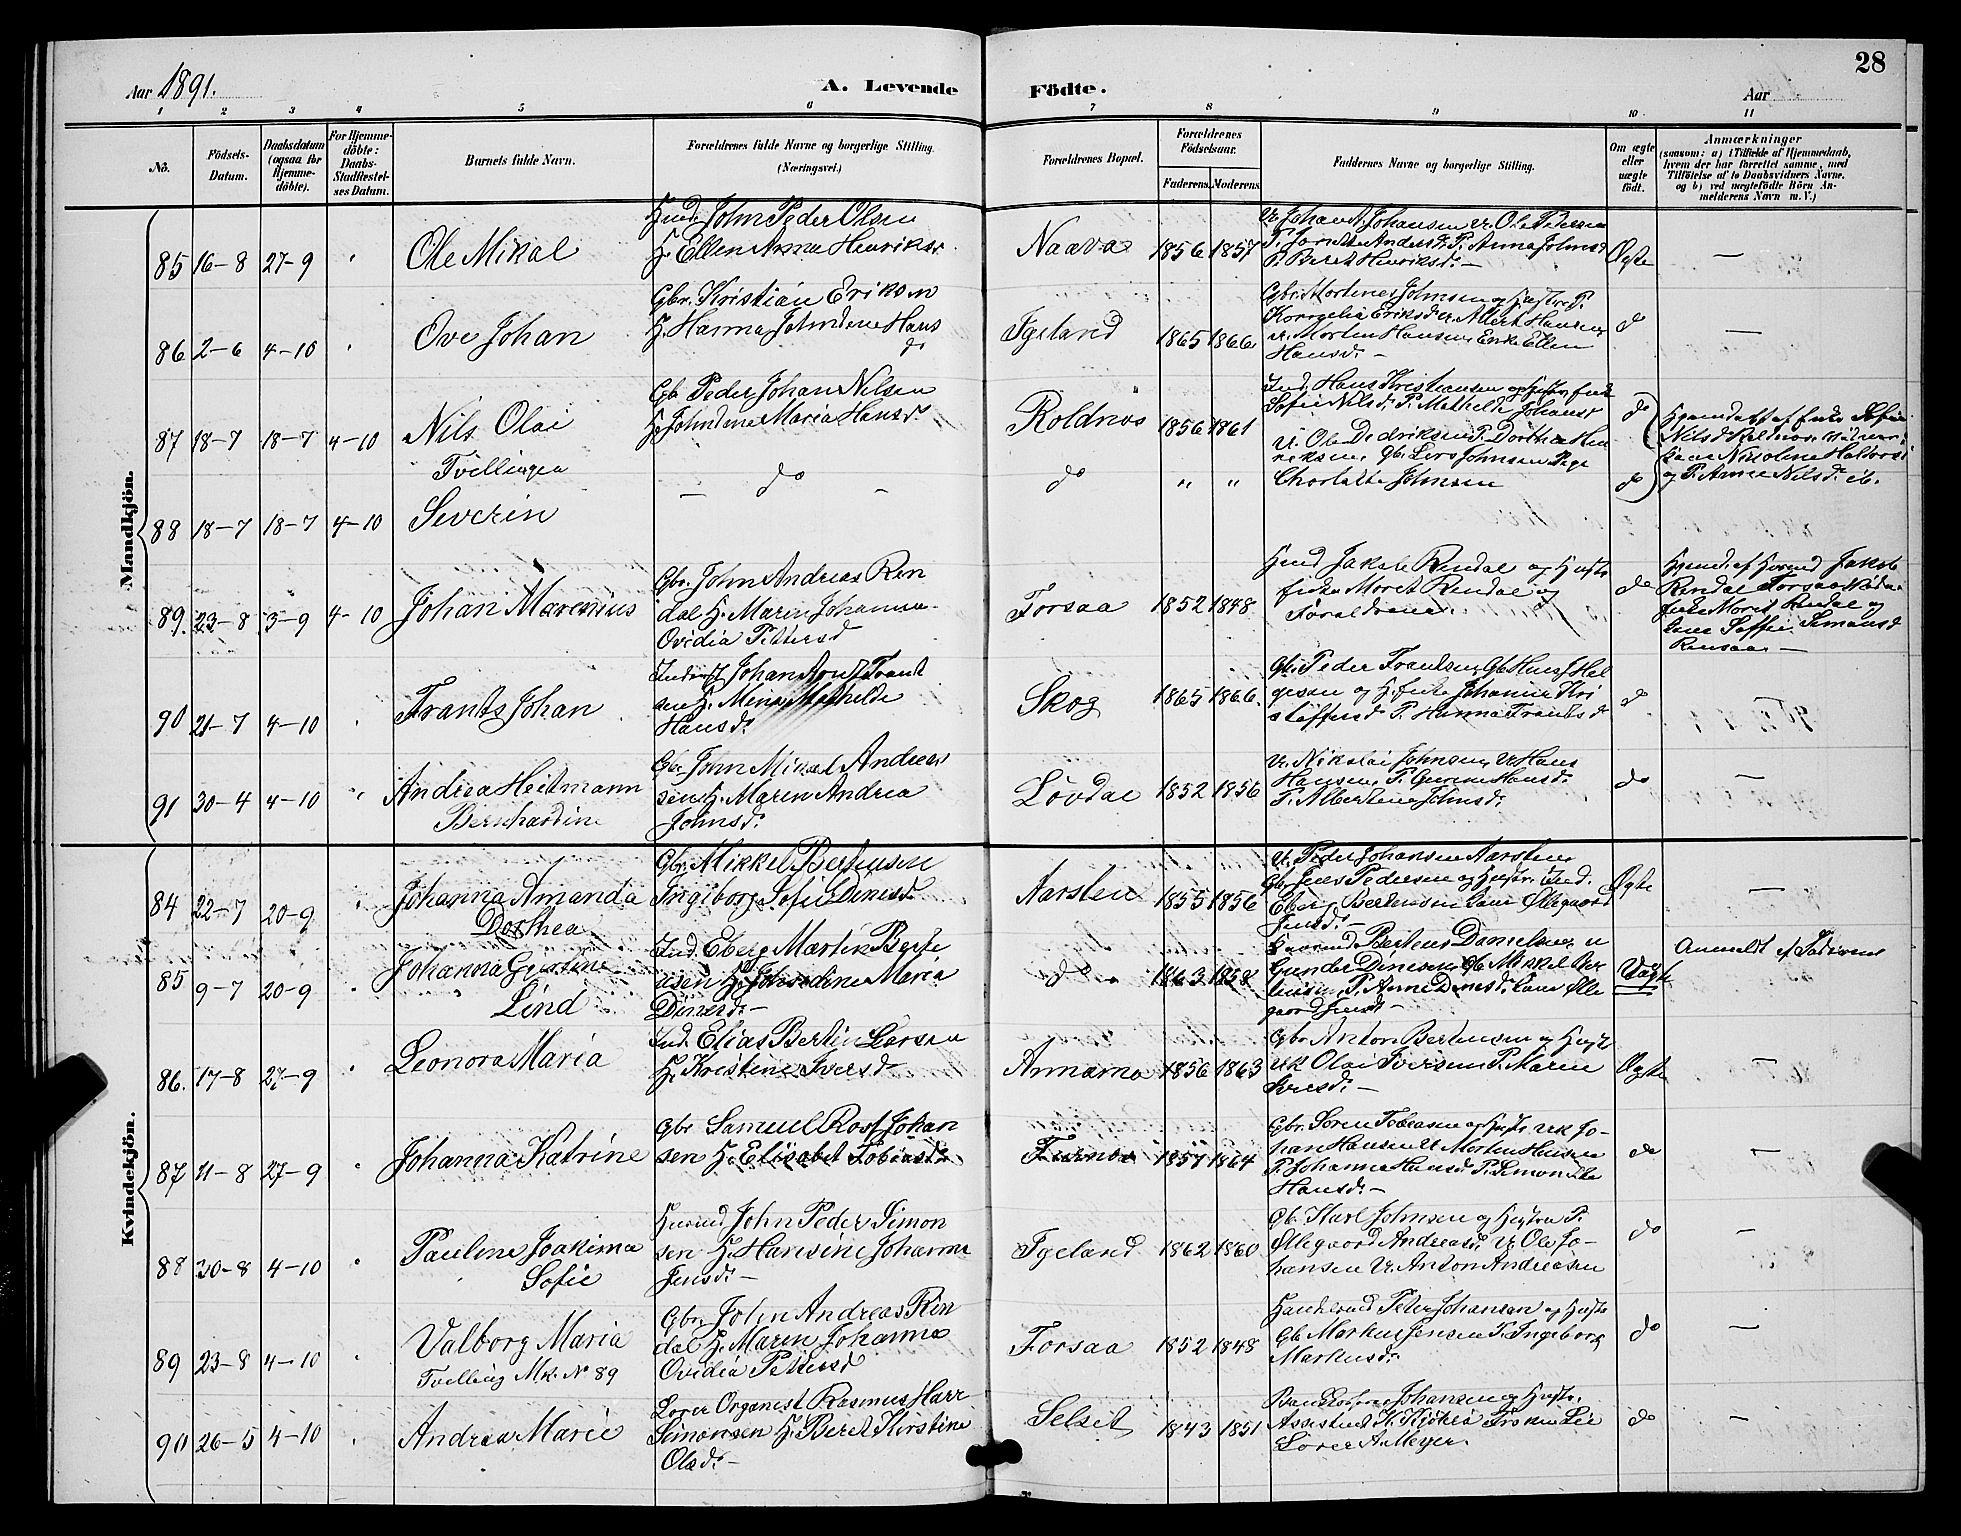 28
Aar 1891.
A. Levende Födte.
Aar
1 2 3 4 5 6 7 8 9 10 11
No.
Födsels-Datum.
Daabsdatum (ogsaa for Hjemme-döbte).
For Hjemme-döbte: Daabs-Stadfæstel-ses Datum.
Barnets fulde Navn.
Forældrenes fulde Navne og borgerlige Stilling. (Næringsvei.)
Forældrenes Bopæl.
Forældrenes Födselsaar.
Faderens. Moderens.
Faddernes Navne og borgerlige Stilling.
Om ægte eller uægte födt.
Anmærkninger
(saasom: a) i Tilfælde af Hjemmedaab, hvem der har forrettet samme, med Tilföielse af to Daabsvidners Navne, og b) ved uægtefödte Börn An-melderens Navn m. V.)
Mandkjön.
85 16-8 27-9 Ole Mikal
John Peder Olsen
H. Ellen Anna Henriksd.
Naava 1856 1857
U. Johan A. Johansen U. Ole Pedersen
P. Anna Johnsd
P. Beret Henriksd. -
Ægte -
86 2-6 4-10 Ove Johan
Gbr. Kristian Erikson
H. Hanna Johndine Hans
d.
Igeland 1865 1866
Gbr. Mortines Johnsen og Hustru P.
Kornelia Eriksd. U. Albert Hansen
U. Morten Hansen, Enke Ellen
Hansd. -
do -
87 18-7 18-7 4-10 Nils Olai
Tvillinger
Gbr. Peder Johan Nilsen
H. Johndine Maria Hansd.
Roldnos 1856 1861
Ind. Hans Kristiansen og Hustru, Enke
Sofie Nilsd. P. Mathilde Johansd
U. Ole Dedriksen P. Dorthea Hen
riksen, Gbr. Lars Johnsen Pige
Charlotte Johnsen
do
Hjemdøbt af Enke Sofie
Nilsd Roldnos. Vidner:
Nikoline Halvorsd
og P. Anne Nilsd. ib.
88 18-7 18-7 4-10 Severin
- do -
do " "
do
89. 23-8 3-9 4-10 Johan Maresius
Gbr. John Andreas Ren
dal H. Maren Johanna
Ovidia Pettersd
Forsaa 1852 1848
Jakob Rendal og Hustr
Enke Moret Rendal og
Forældrene.
do
Hjemd. af Husmd Jakob
Rendal Forsaa Vidner
Enke Moret Rendal og
Simonsd
Rensaa -
90 21-7 4-10 Frants Johan
Inderst Johan Aron Frant
sen H. Mina Mathilde
Hansd.
Skog 1865 1866.
Gbr. Peder Frantsen, Gbr Hans J Hel
gesen og H. Enke Johanne Kri
stoffersd P. Hanna Frantsd
do
91 30-4 4-10 Andrea Heitmann
Bernhardine
Gbr. John Mikal Andrea
sen H. Maren Andrea
Johnsd.
Løvdal 1852 1856
U. Nikolai Johnsen, U. Hans
Hansen, P. Hansd.
P. Albertine Johnsd.
do -
Kvindekjön.
84 22-7 20-9 Johanna Amanda
Dorthea
Gbr. Mikkel Bertensen
Ingiborg Sofie Dinesd
Aarsten 1855 1856
U. Peder Johansen Aarsten,
Gbr. Jens Pedersen og Hustr. Ind.
Eberg Bertensen Ellegaard
Jensd. -
Ægte -
85 9-7 20-9 Johanna Gjertine
Lind
Ind. Eberg Martin Berte
nsen H. Johndine Maria
Dinesd. -
do 1863 1858
Bertens Danielsen, U
Gunder Dinesen, Gb Mikkel Ber
tensen, P. Anne Dinesd. Elle
gaard Jensd -
Uægte
Anmeldt af Faderen
86. 17-8 27-9 Leonora Maria
Ind. Elias Bertin Larsen
H. Kristine Iversd
Annamo 1856 1863
Gbr Anton Bertensen og Hustr
UK Olai Iversen P. Maren
Iversd. -
Ægte -
87 11-8 27-9 Johanna Katrine
Gbr Samuel Rost Johan
sen H. Elisabet Tobiasd.
1857 1864
Gbr. Søren Tobiasen og Hustr. UK Jo-
han Hansen U Morten Hansen
P. Johanna Hansd. P.
Hansd. -
do -
88 20-8 4-10 Pauline Joakima
Sofie
Husmd John Peder Simon
sen H. Hansine Johanna
Jensd. -
Igeland 1862 1860
Gb. Karl Johnsen og Hustru P.
Ellegaard Andreasd. U. Ole Jo-
hansen U. Anton Andreasen
do -
89 23-8 4-10 Valborg Maria
Tvilling Mk. No 89
Gbr. John Andreas Rin
dal H. Maren Johanna
Ovidia Pettersd
Forsaa 1852 1848
Peter Johansen og Hustr
Gb Markus Jensen P. Ingeborg
Markusd.
do -
90 26-5 4-10 Andrea Marie
Lærer Organist Rasmus Harr
Simonsen H. Beret Kirstine
Olsd. -
Selset 1843 1851
Johansen og Hustr.
Assistent K. Frøken Lie
Lærer A. Meyer.
do -